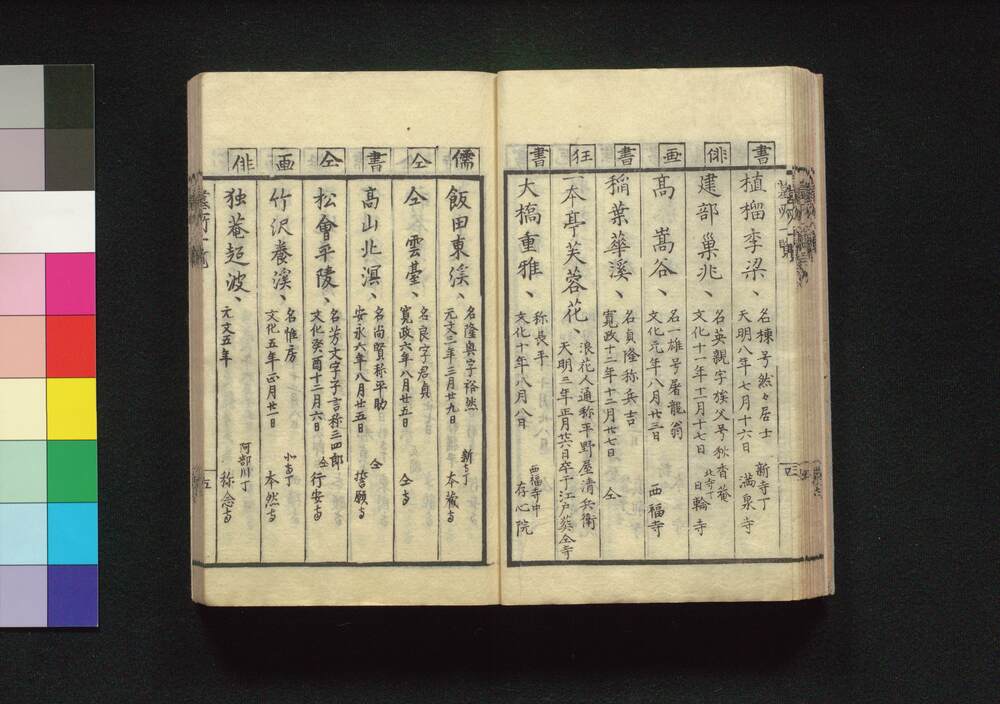 書
植榴李梁、
名棟号然々居士
天明八年七月十六日
新寺丁
満泉寺
俳
建部巣兆、
名英親字族父号秋香菴
文化十一年十一月十七日
北寺丁
日輪寺
画
高嵩谷、
名一雄号屠龍翁
文化元年八月廿三日
西福寺
書
稲葉華溪、
名貞隆称兵吉
寛政十二年十二月廿七日
仝
狂
一本亭芙蓉花、
浪花人通称平野屋清兵衛
天明三年正月廿六日卒于江戸葵仝寺
書
大橋重雅、
称長平
文化十年八月八日
西福寺中
存心院
儒
飯田東溪、
名隆奥字裕然
元文三年三月廿九日
新寺丁
本蔵寺
仝
仝雲臺、
名良字君貞
寛政六年八月廿五日
仝寺
書
高山北溟、
名尚賢称平助
安永六年八月廿五日
仝
誓願寺
仝
松會平陵、
名芳文字子言称三四郎
文化癸酉十二月六日
仝
行安寺
画
竹沢養溪、
名惟房
文化五年正月廿一日
北寺丁
本然寺
俳
独菴超波、
元文五年
阿部川丁
称念寺
五